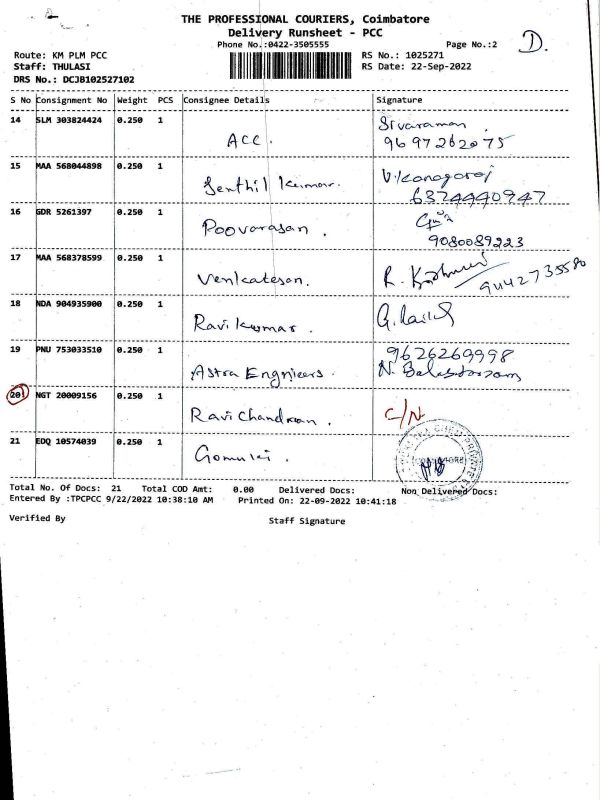 THE PROFESSIONAL COURIERS, Coimbatore
Delivery Runsheet - PCC
Phone No.:0422-3505555 Page No.:2 D.
Route: KM PLM PCC RS No.: 1025271
Staff: THULASI RS Date: 22-Sep-2022
DRS No.: DCJB102527102
S No Consignment No Weight PCS Consignee Details Signature
14 SLM 303824424 0.250 1 ACC. Sivaraman
9697262075
15 MAA 568044898 0.250 1 Senthil kumar. V.kanagaraj
6374440947
16 GDR 5261397 0.250 1 Poovarasan.
9080089223
17 MAA 568378599 0.250 1 Venkatesan. R.
9442735580
18 NDA 904935900 0.250 1 Ravi kumar.
19 PNU 753033510 0.250 1 Astra Engnieers. 9626269998
N.
20 NGT 20009156 0.250 1 Ravi Chandran. C/N
21 EDQ 10574039 0.250 1
Total No. Of Docs: 21 Total COD Amt: 0.00 Delivered Docs: Non Delivered Docs:
Entered By :TPCPCC 9/22/2022 10:38:10 AM Printed On: 22-09-2022 10:41:18
Verified By Staff Signature